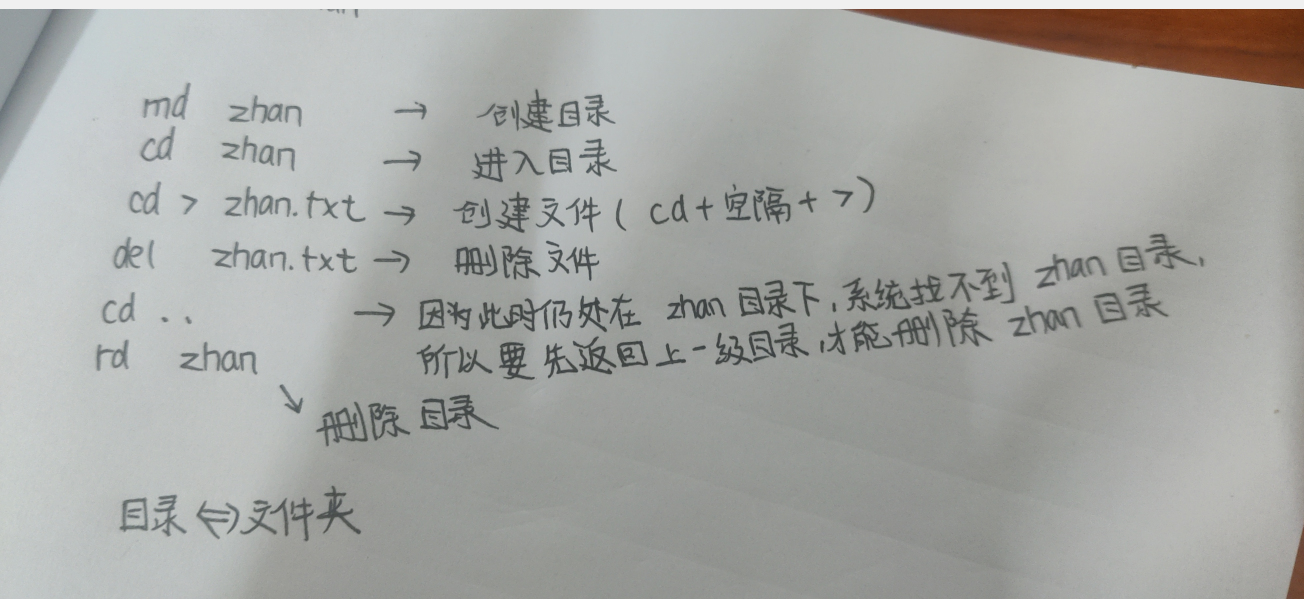 md zhan → 创建目录
cd zhan → 进入目录
cd > zhan.txt → 创建文件( cd+空隔+>)
del zhan.txt → 删除文件
cd .. → 因为此时仍处在 zhan 目录下,系统找不到 zhan 目录,
rd zhan 所以要先返回上一级目录,才能删除 zhan 目录
↘ 删除目录
目录⇔文件夹